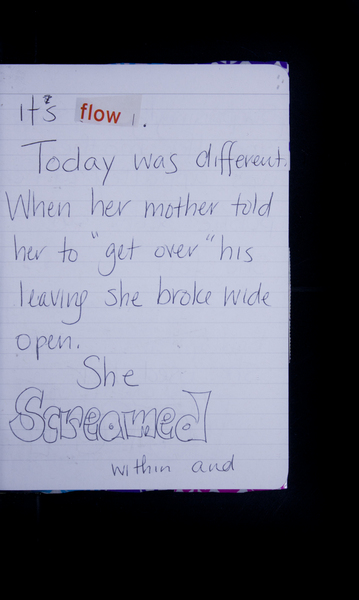 it's flow.
Today was different.
When her mother told
her to "get over" his
leaving she broke wide
open.
She
Screamed
within and